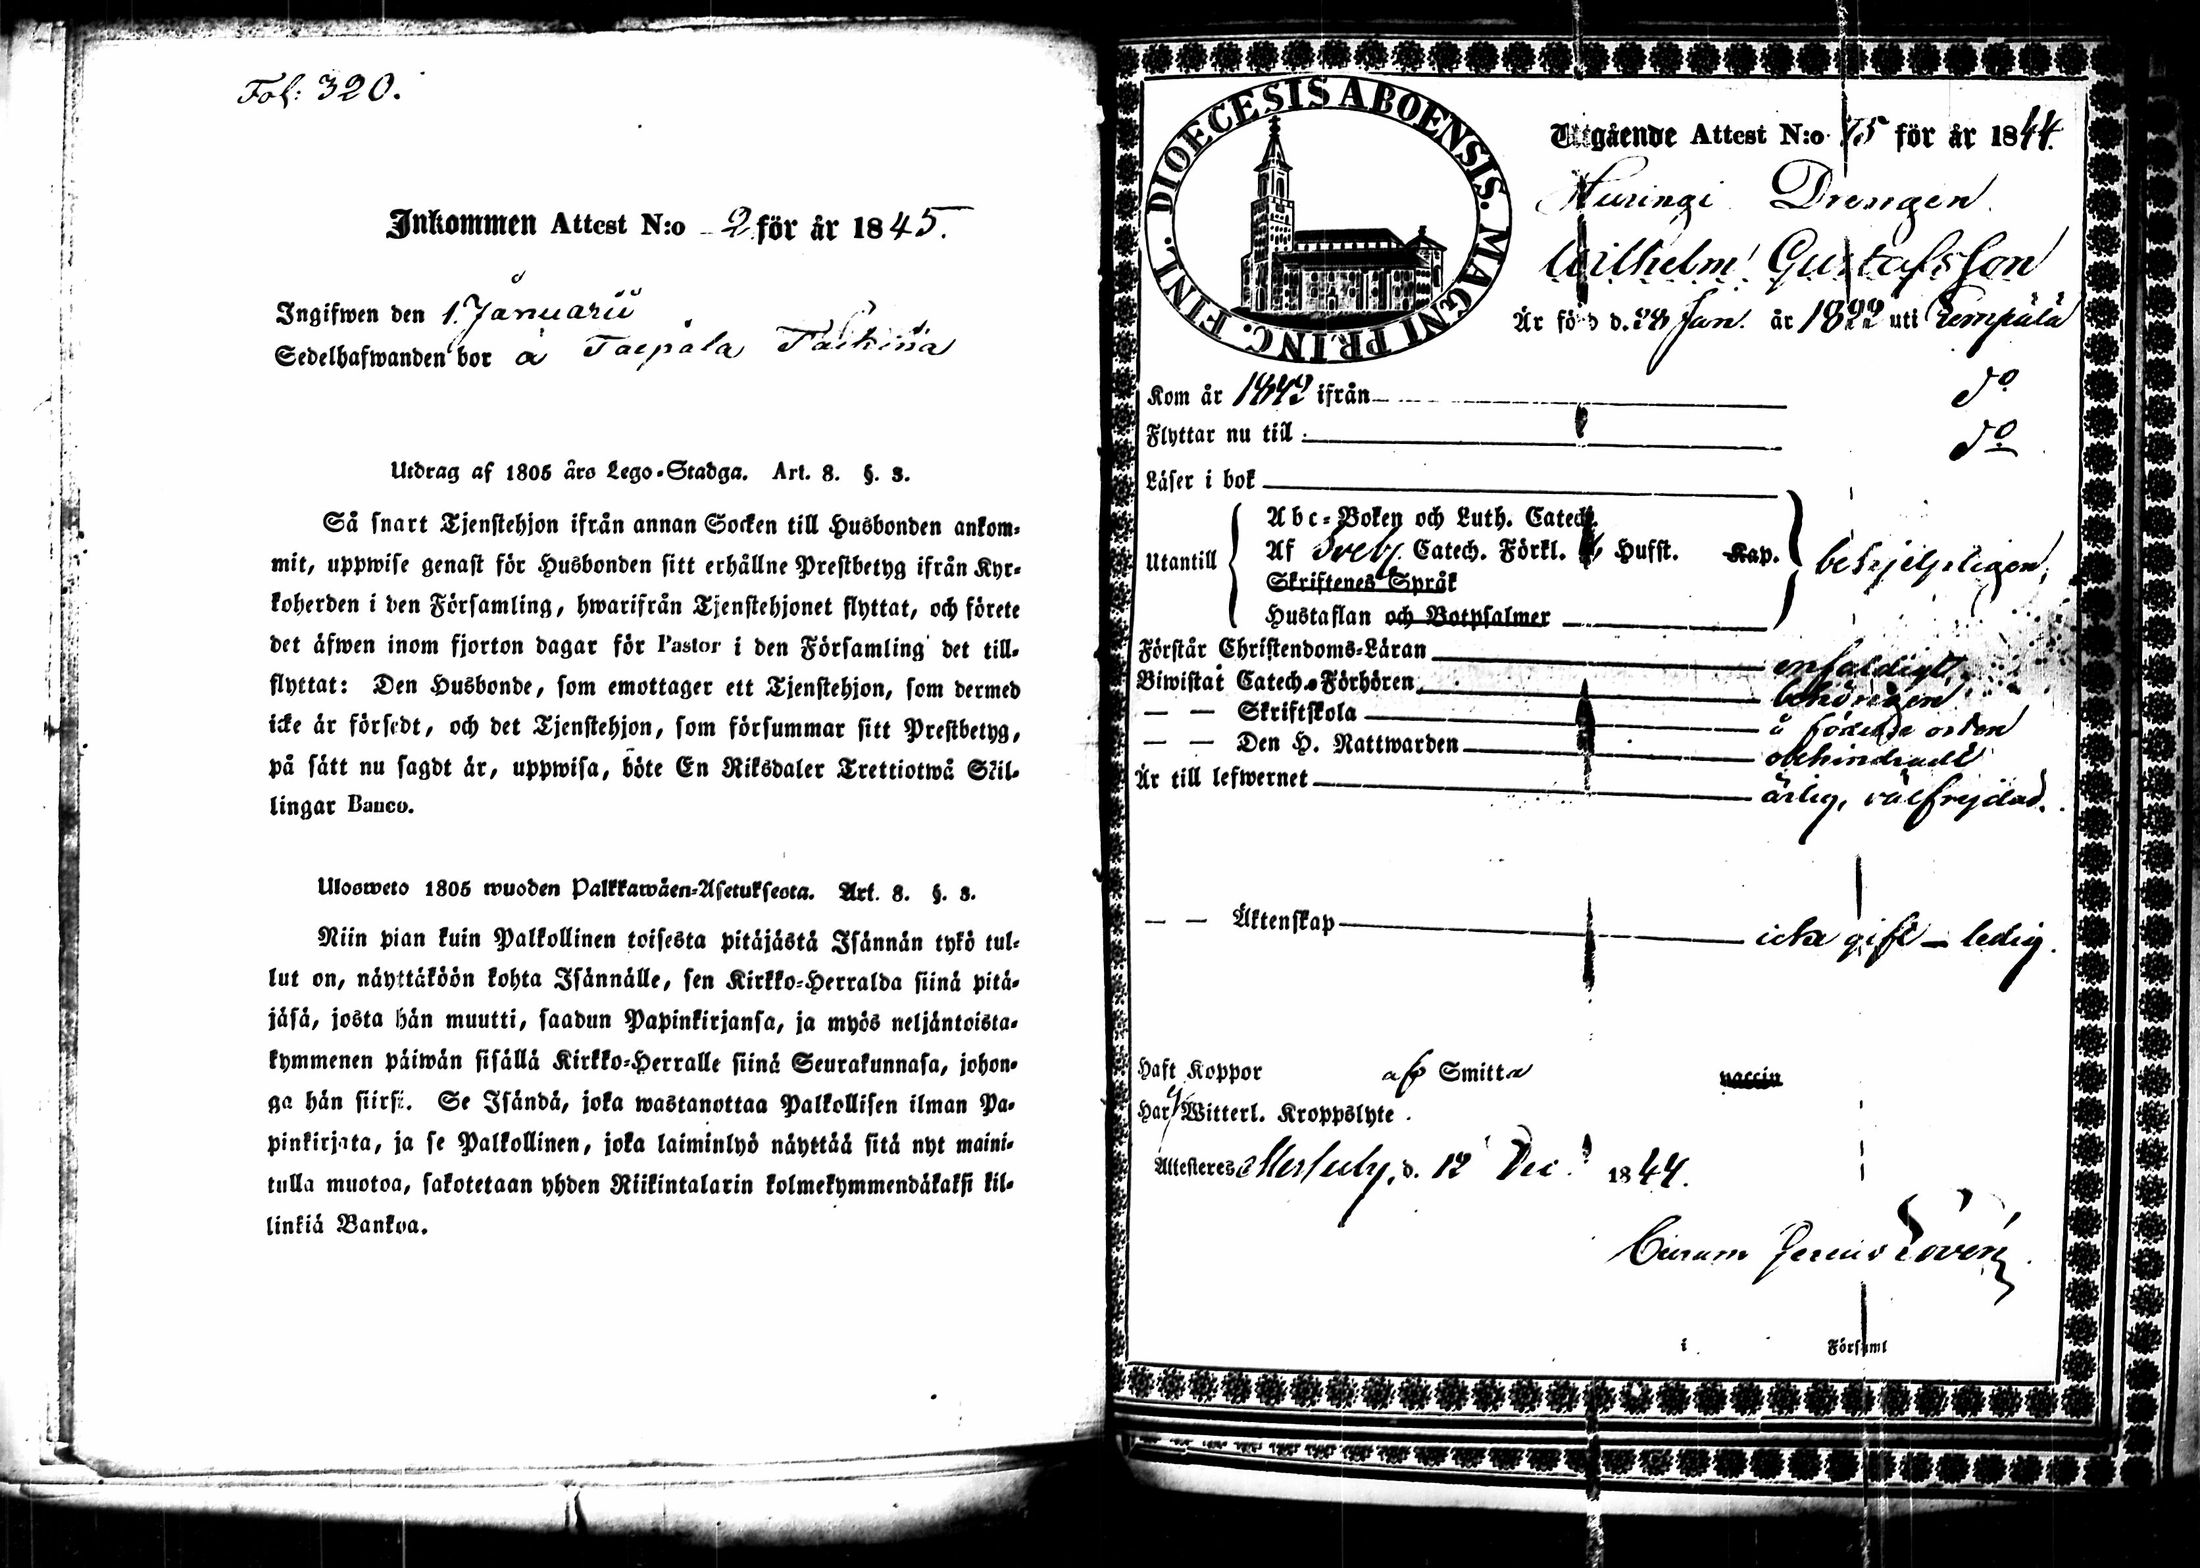 Fol: 320.
Inkommen Attest N:o 2 för år 1845.
Ingifwen den 1. Januarii
Sedelhafwanden bor å Taipala
Utdrag af 1805 års Lego-Stadga. Art. 8. §. 3.
Så snart Tjenstehjon ifrån annan Socken till Husbonden ankom-
mit, uppwise genast för Husbonden sitt erhållne Prestbetyg ifrån Kyr-
koherden i den Församling, hwarifrån Tjenstehjonet flyttat, och förete
det äfwen inom fjorton dagar för Pastor i den Församling det till-
flyttat: Den Husbonde, som emottager ett Tjenstehjon, som dermed
icke är försedt, och det Tjenstehjon, som försummar sitt Prestbetyg,
på sätt nu sagdt är, uppwisa, böte En Riksdaler Trettiotwå Skil-
lingar Banco.
Ulosweto 1805 wuoden Palkkawäen-Asetuksesta. Art. 8. §. 3.
Niin pian kuin Palkollinen toisesta pitäjästä Isännän tykö tul-
lut on, näyttäköön kohta Isännälle, sen Kirkko-Herralda siinä pitä-
jäsä, josta hän muutti, saadun Papinkirjansa, ja myös neljäntoista-
kymmenen päiwän sisällä Kirkko-Herralle siinä Seurakunnasa, johon-
ga hän siirsi. Se Isändä, joka wastanottaa Palkollisen ilman Pa-
pinkirjata, ja se Palkollinen, joka laiminlyö näyttää sitä nyt maini-
tulla muotoa, sakotetaan yhden Riikintalarin kolmekymmendäkaksi kil-
linkiä Bankoa.
DIOECESIS ABOENSIS. MAGNI PRINC. FINL.
Utgående Attest N:o 75 för år 1844.
Drengen
Wilhelm Gustafsson
Är född d. 28 Jan. år 1822 uti Lempälä
Kom år 1843 ifrån do
Flyttar nu till do
Läser i bok
Utantill
Abc-Boken och Luth. Catech.
Af Sveb. Catech. Förkl. Hufst. Kap.
Skriftenes Språk
Hustaflan och Botpsalmer
behjelpligen,
Förstår Christendoms-Läran enfaldigt,
Biwistat Catech.-Förhören behörigen
— — Skriftskola å födelse orten
— — Den H. Nattwarden obehindradt
Är till lefwernet ärlig, välfrejdad.
— — Äktenskap icke gift — ledig.
Haft Koppor af Smitta vaccin
Har Witterl. Kroppslyte.
Attesteras d. 12 Dec. 1844.
Curam Gerens Lovén
i Församl